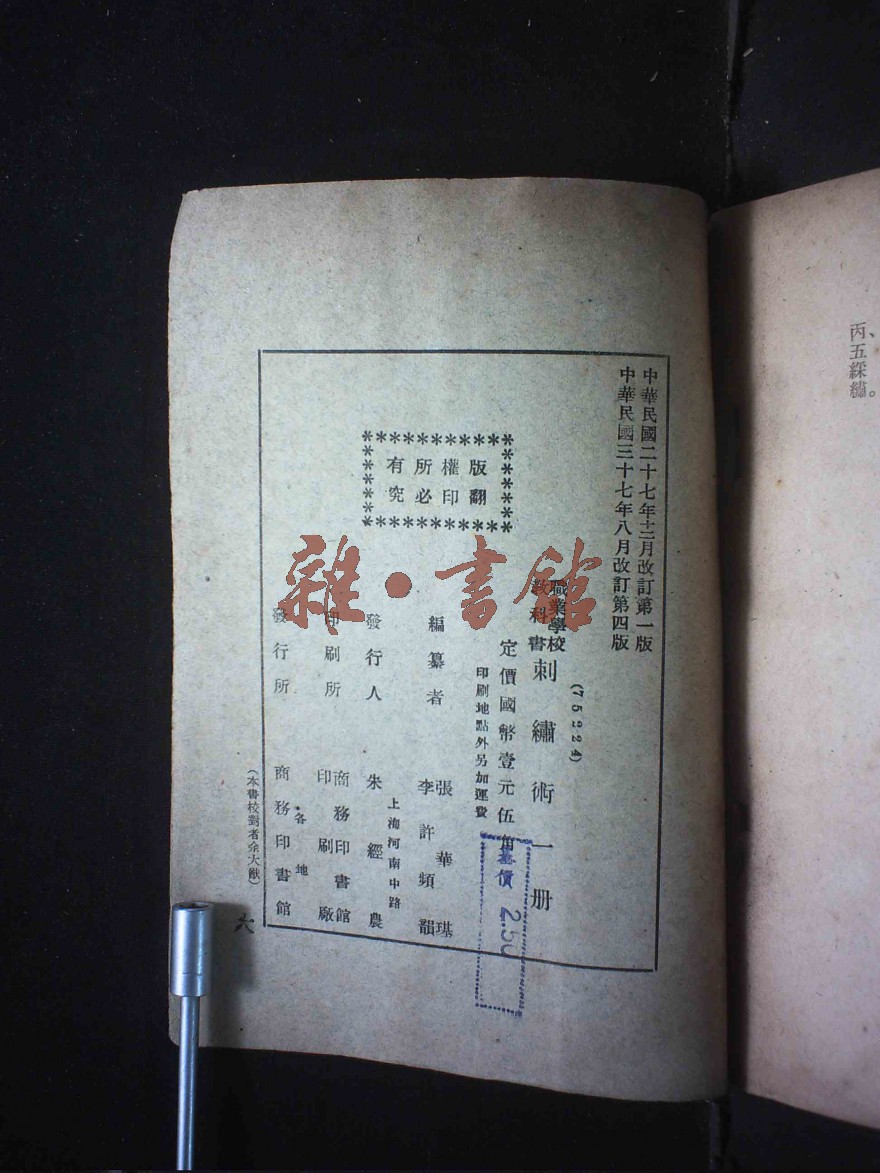 丙、五綵繡。
中華民國二十七年十二月改訂第一版
中華民國三十七年八月改訂第四版
(75224)
職業學校
教科書
刺繡術一册
定價國幣壹元伍角
印刷地點外另加運費
基價 2.50
版權所有
翻印必究
編纂者
張華璂
李許頻韻
發行人
上海河南中路
朱經農
印刷所
商務印書館
印刷廠
發行所
各地
商務印書館
(本書校對者余大猷)
雜·書館